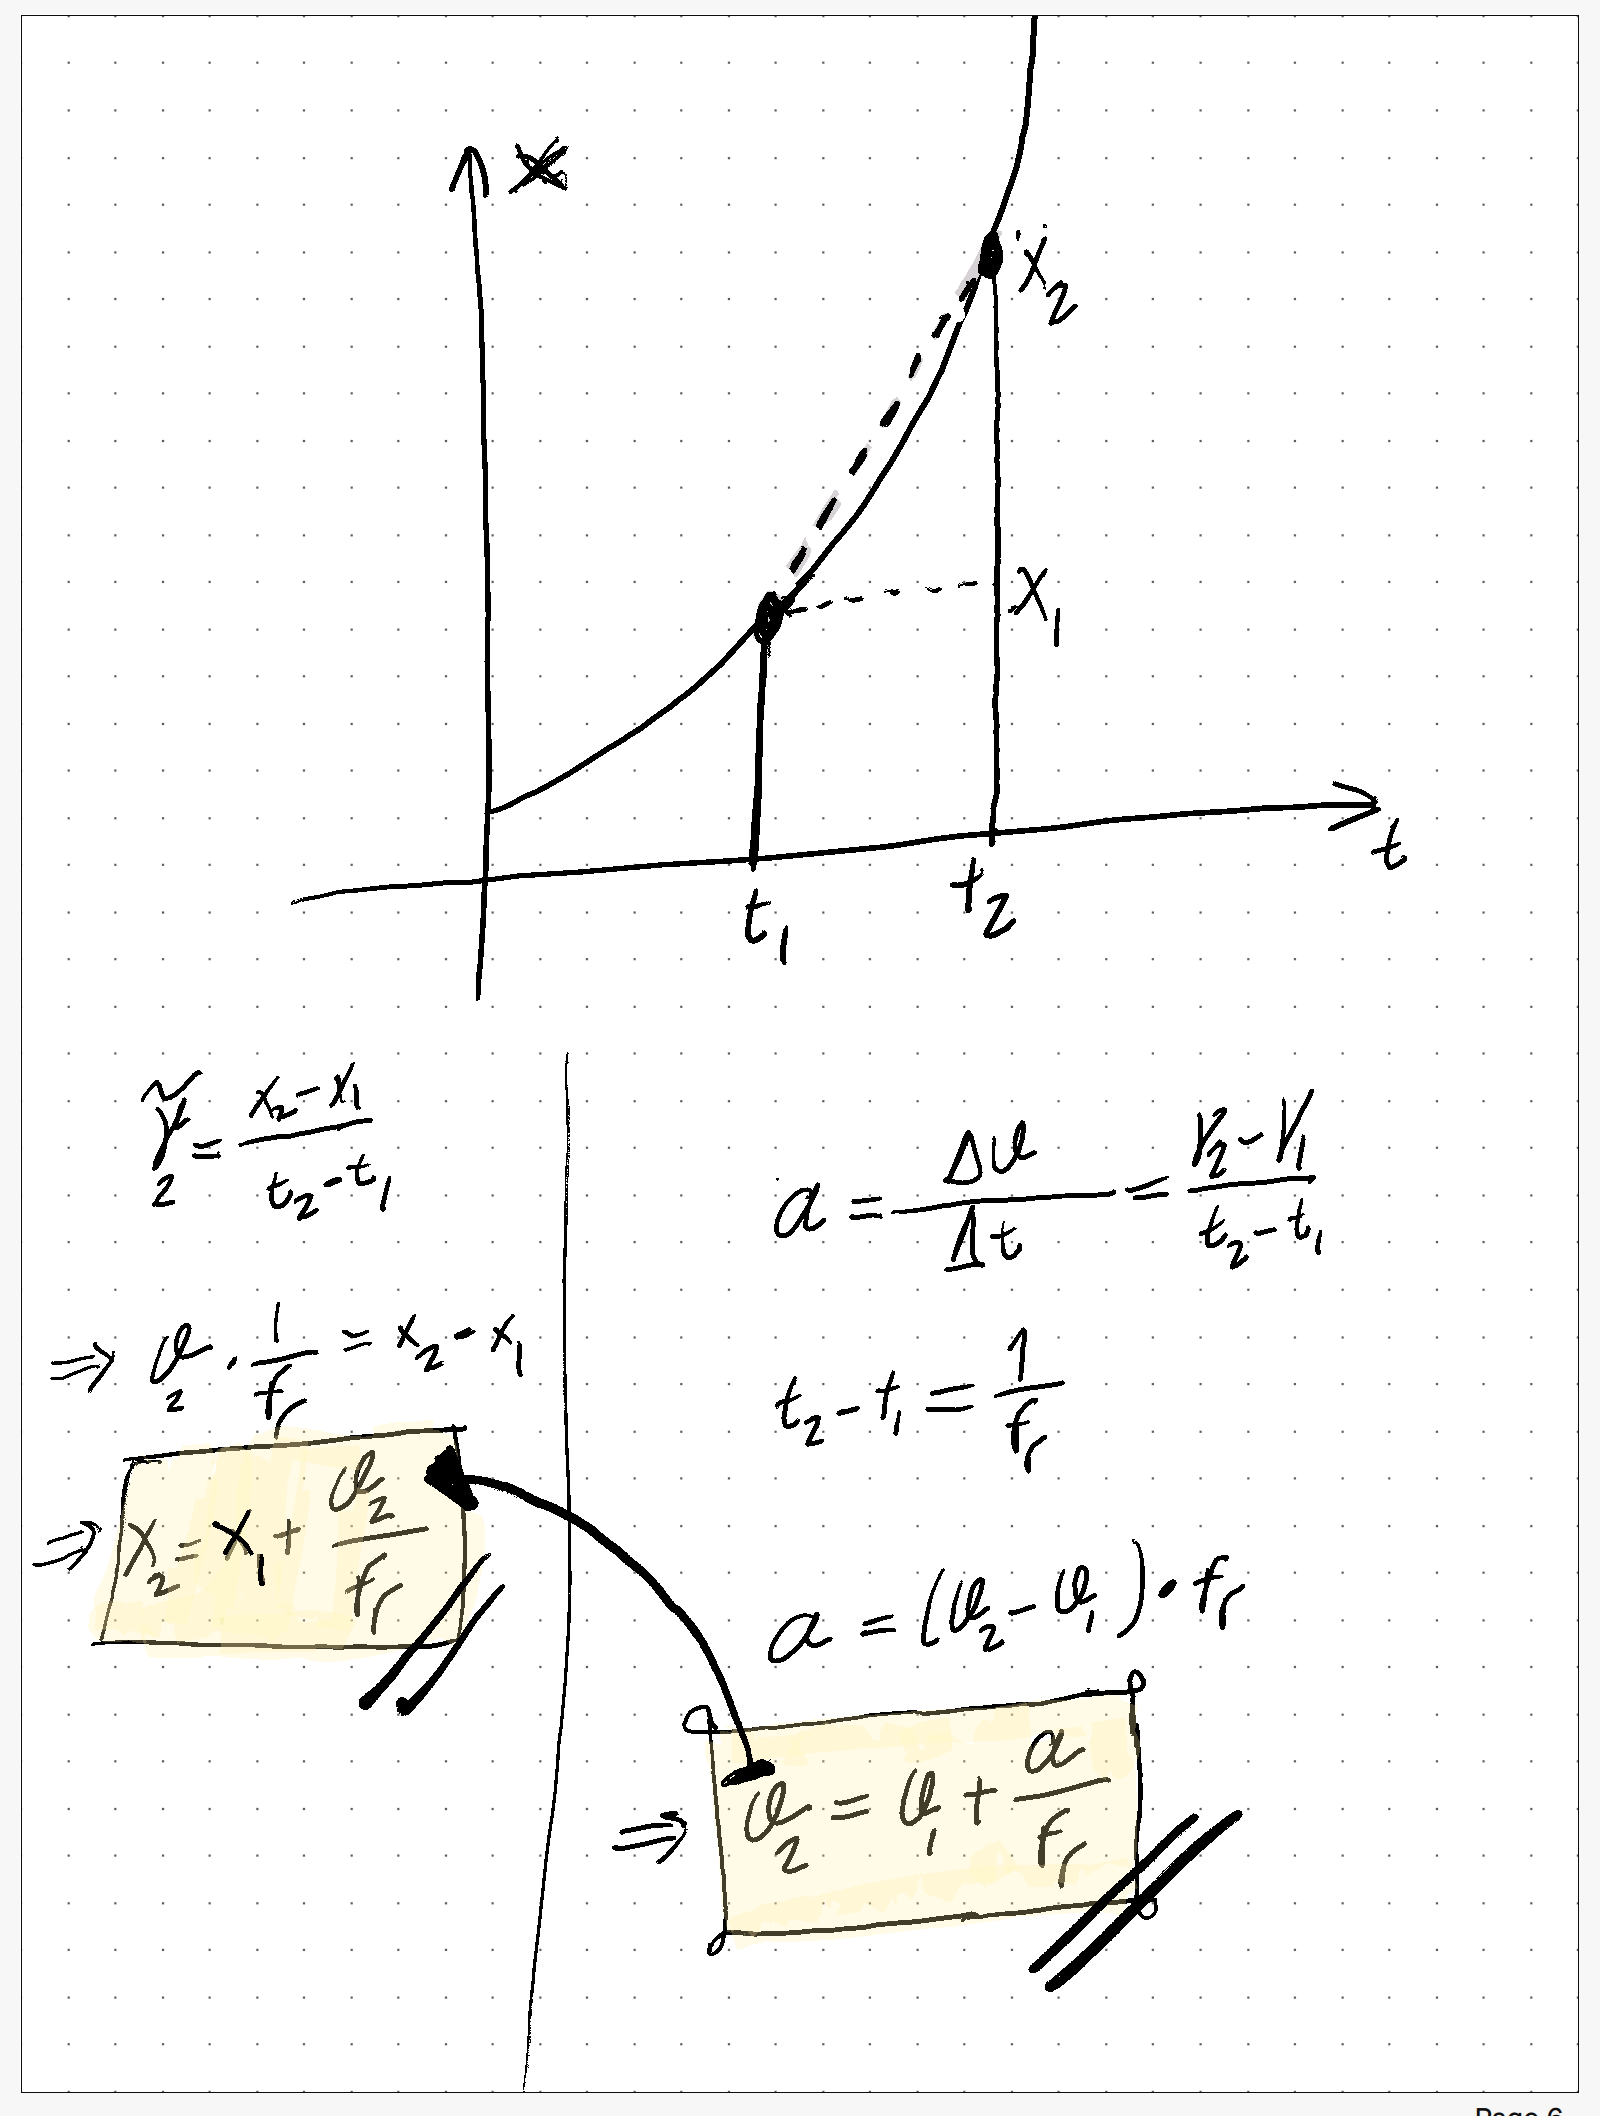 x
x₂
x₁
t
t₁
t₂
ṽ₂ = (x₂ - x₁) / (t₂ - t₁)
⇒ v₂ · 1/fᵣ = x₂ - x₁
⇒ x₂ = x₁ + v₂/fᵣ
a = Δv/Δt = (v₂ - v₁) / (t₂ - t₁)
t₂ - t₁ = 1/fᵣ
a = (v₂ - v₁) · fᵣ
⇒ v₂ = v₁ + a/fᵣ
Page 6